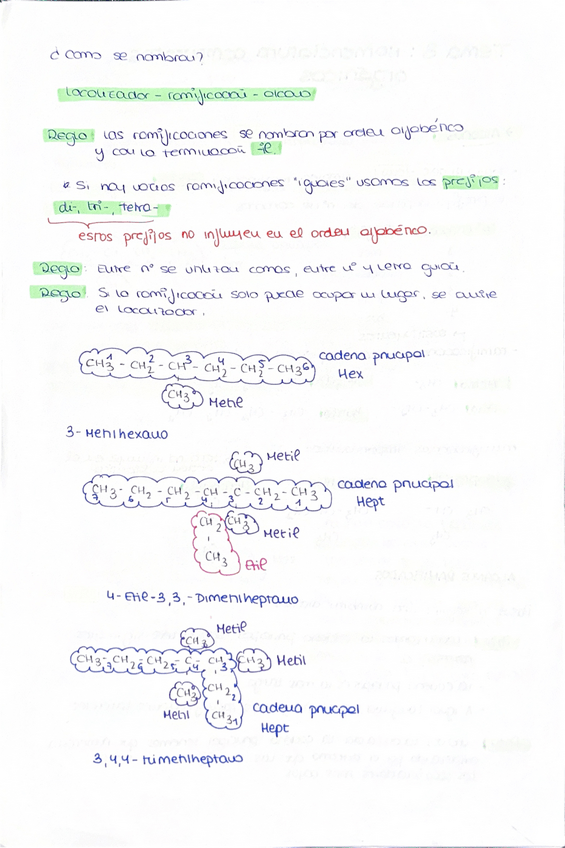 ¿Como se nombran?
Localizador - ramificación - alcano
Regla: Las ramificaciones se nombran por orden alfabético
y con la terminación -il.
Si hay varias ramificaciones "iguales" usamos los prefijos:
di-, tri-, tetra-
estos prefijos no influyen en el orden alfabético.
Regla: Entre nº se utilizan comas, entre nº y letra guión.
Regla: Si la ramificación solo puede ocupar un lugar, se omite
el localizador.
CH3 1 - CH2 2 - CH 3 - CH2 4 - CH2 5 - CH3 6 cadena principal
Hex
CH3 Metil
3-Metilhexano
CH3 Metil
CH3 - CH2 - CH2 - CH - C - CH2 - CH3 cadena principal
7 6 5 4 3 2 1 Hept
CH2 CH3 Metil
CH3 Etil
4-Etil-3,3,-Dimetilheptano
Metil
CH3
CH3 7 - CH2 6 - CH2 5 - C 4 - CH 3 CH3 Metil
CH3 CH2 2
Metil CH3 1 cadena principal
Hept
3,4,4-trimetilheptano